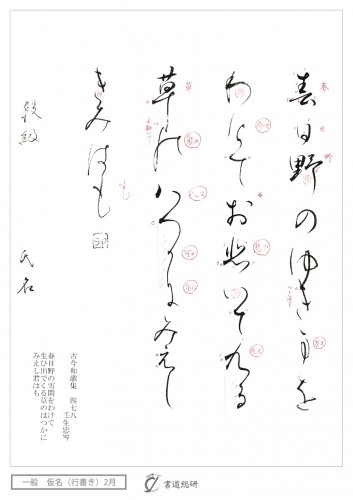 春日野のゆきまを
わけてお悲いてくる
草のはつかにみえし
きみはも 印
段級 氏名
古今和歌集 四七八
壬生忠岑
春日野の雪間をわけて
生ひ出でくる草のはつかに
みえし君はも
一般 仮名（行書き）2月
書道総研